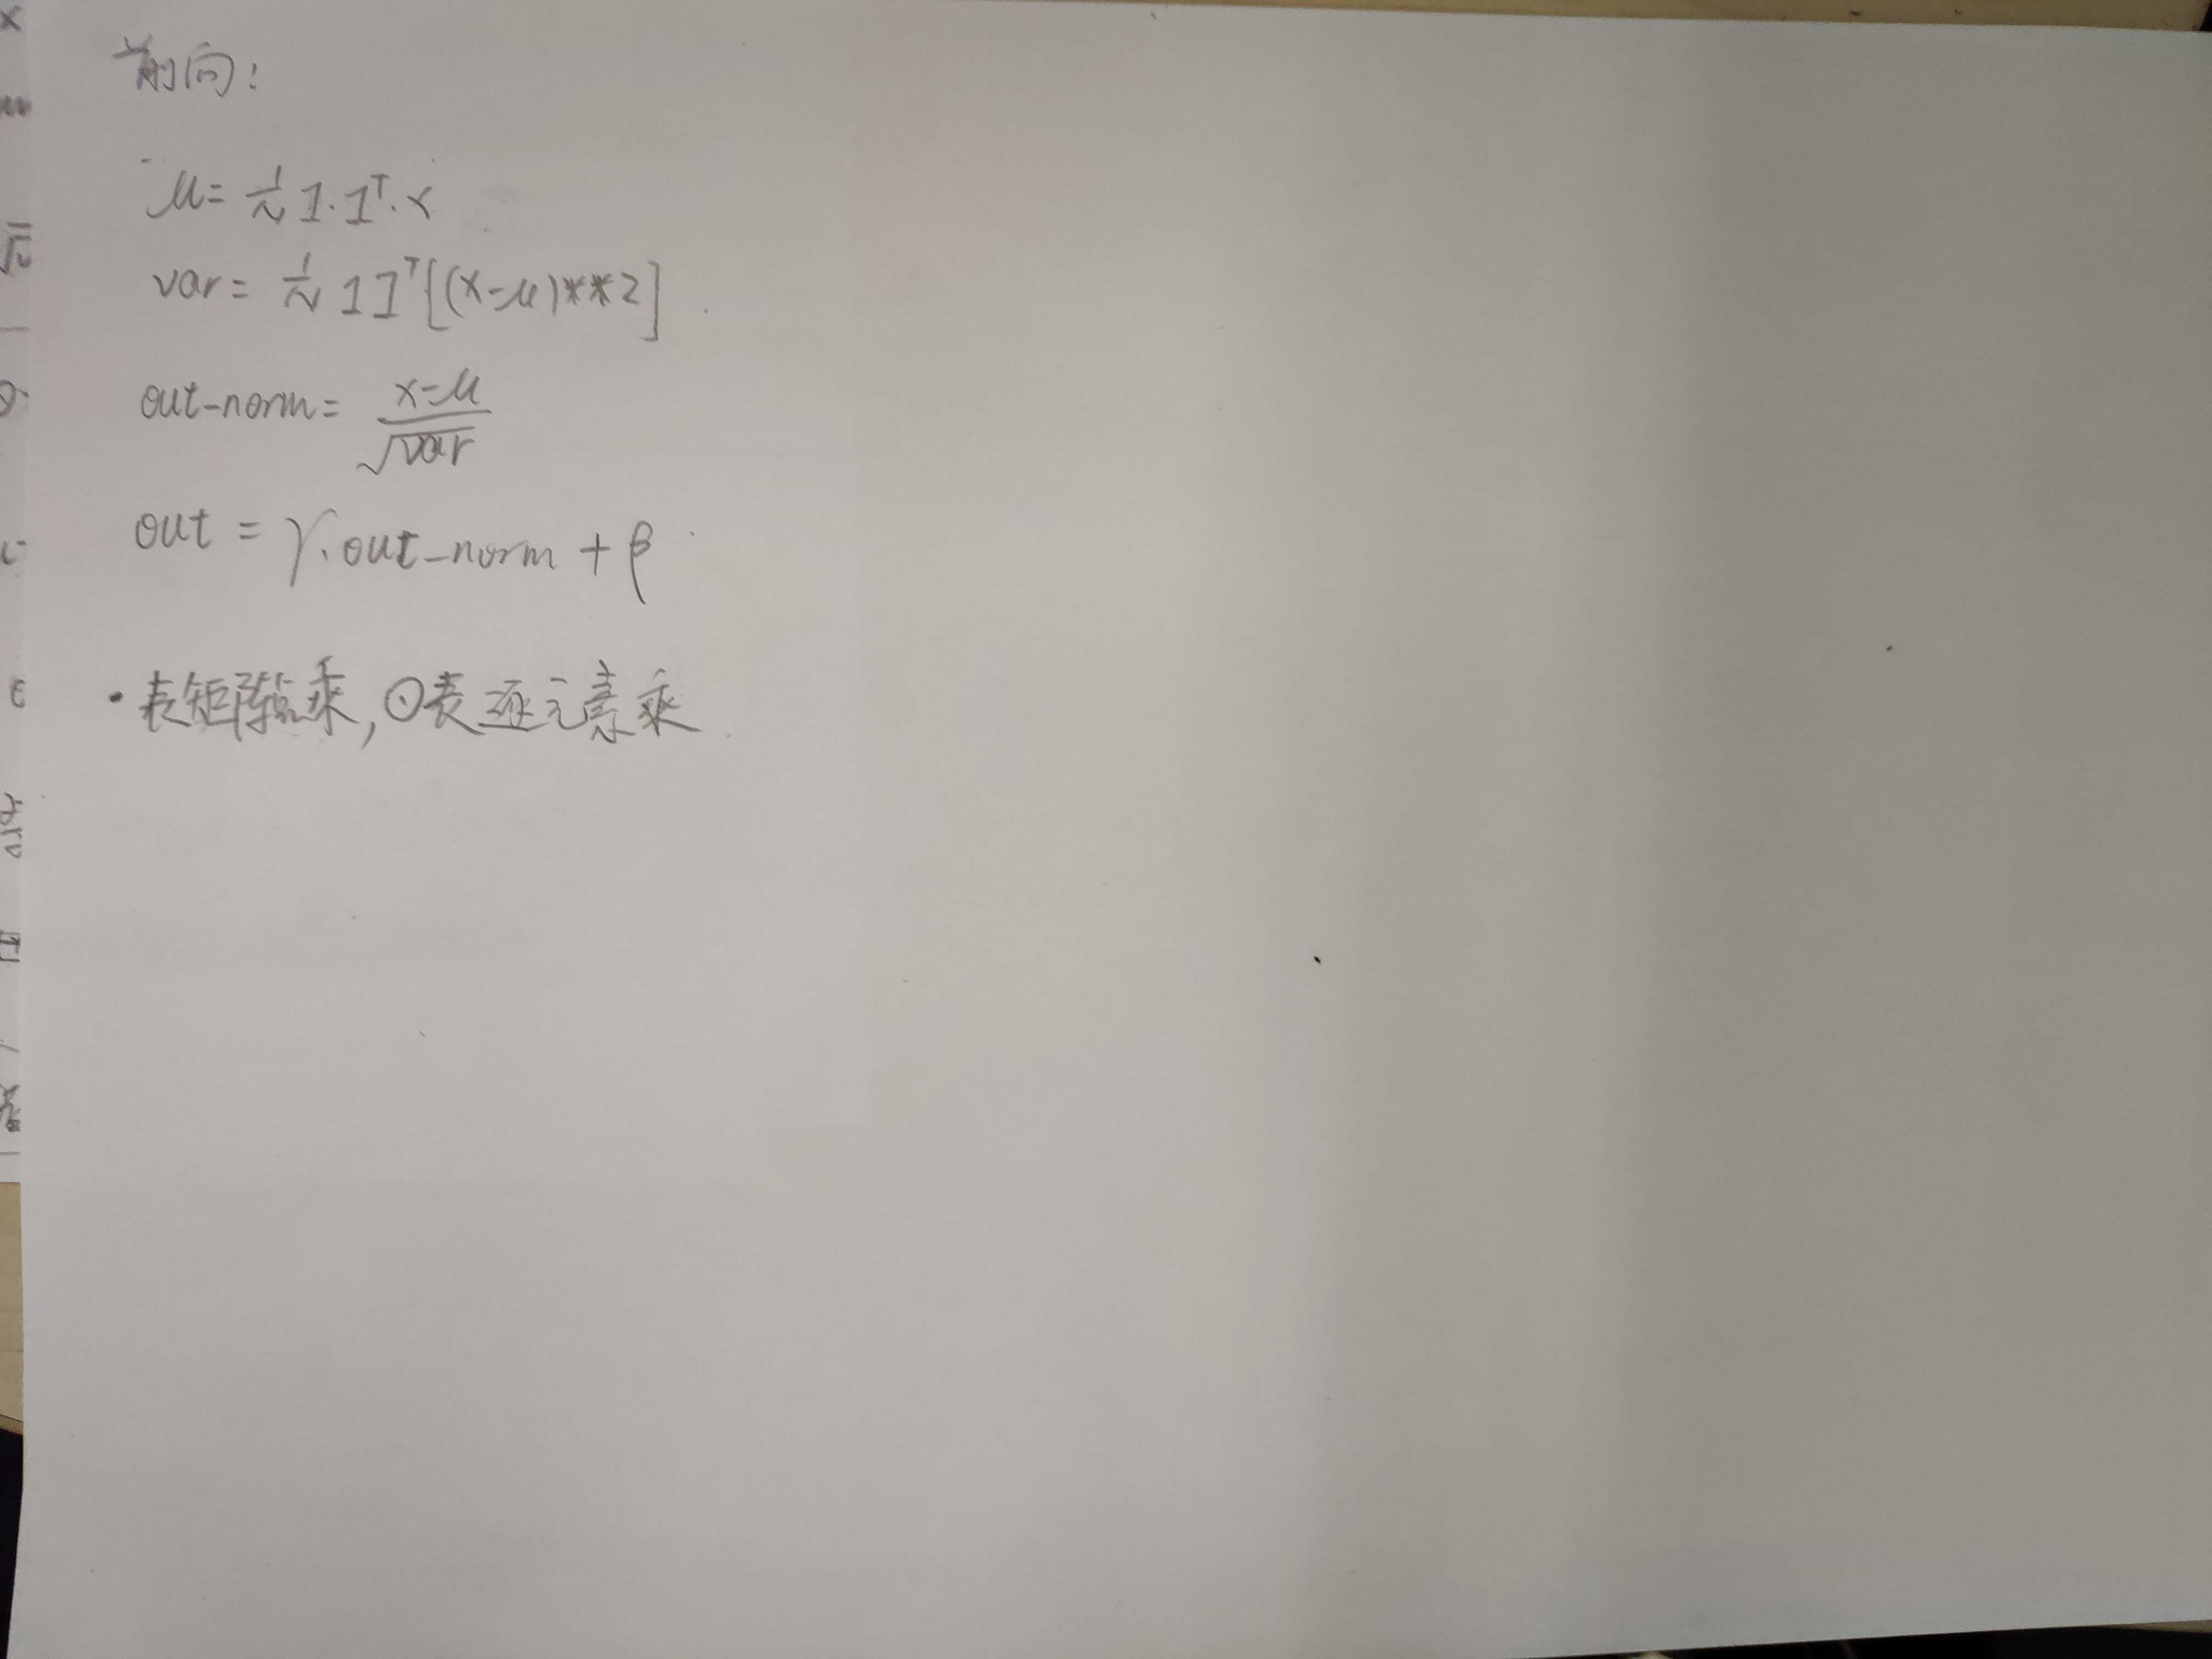 前向:
μ = 1/N 1·1ᵀ·x
var = 1/N 1 1ᵀ[(x-μ)**2]
out-norm = x-μ / √var
out = γ·out-norm + β
·表矩阵乘,⊙表逐元素乘